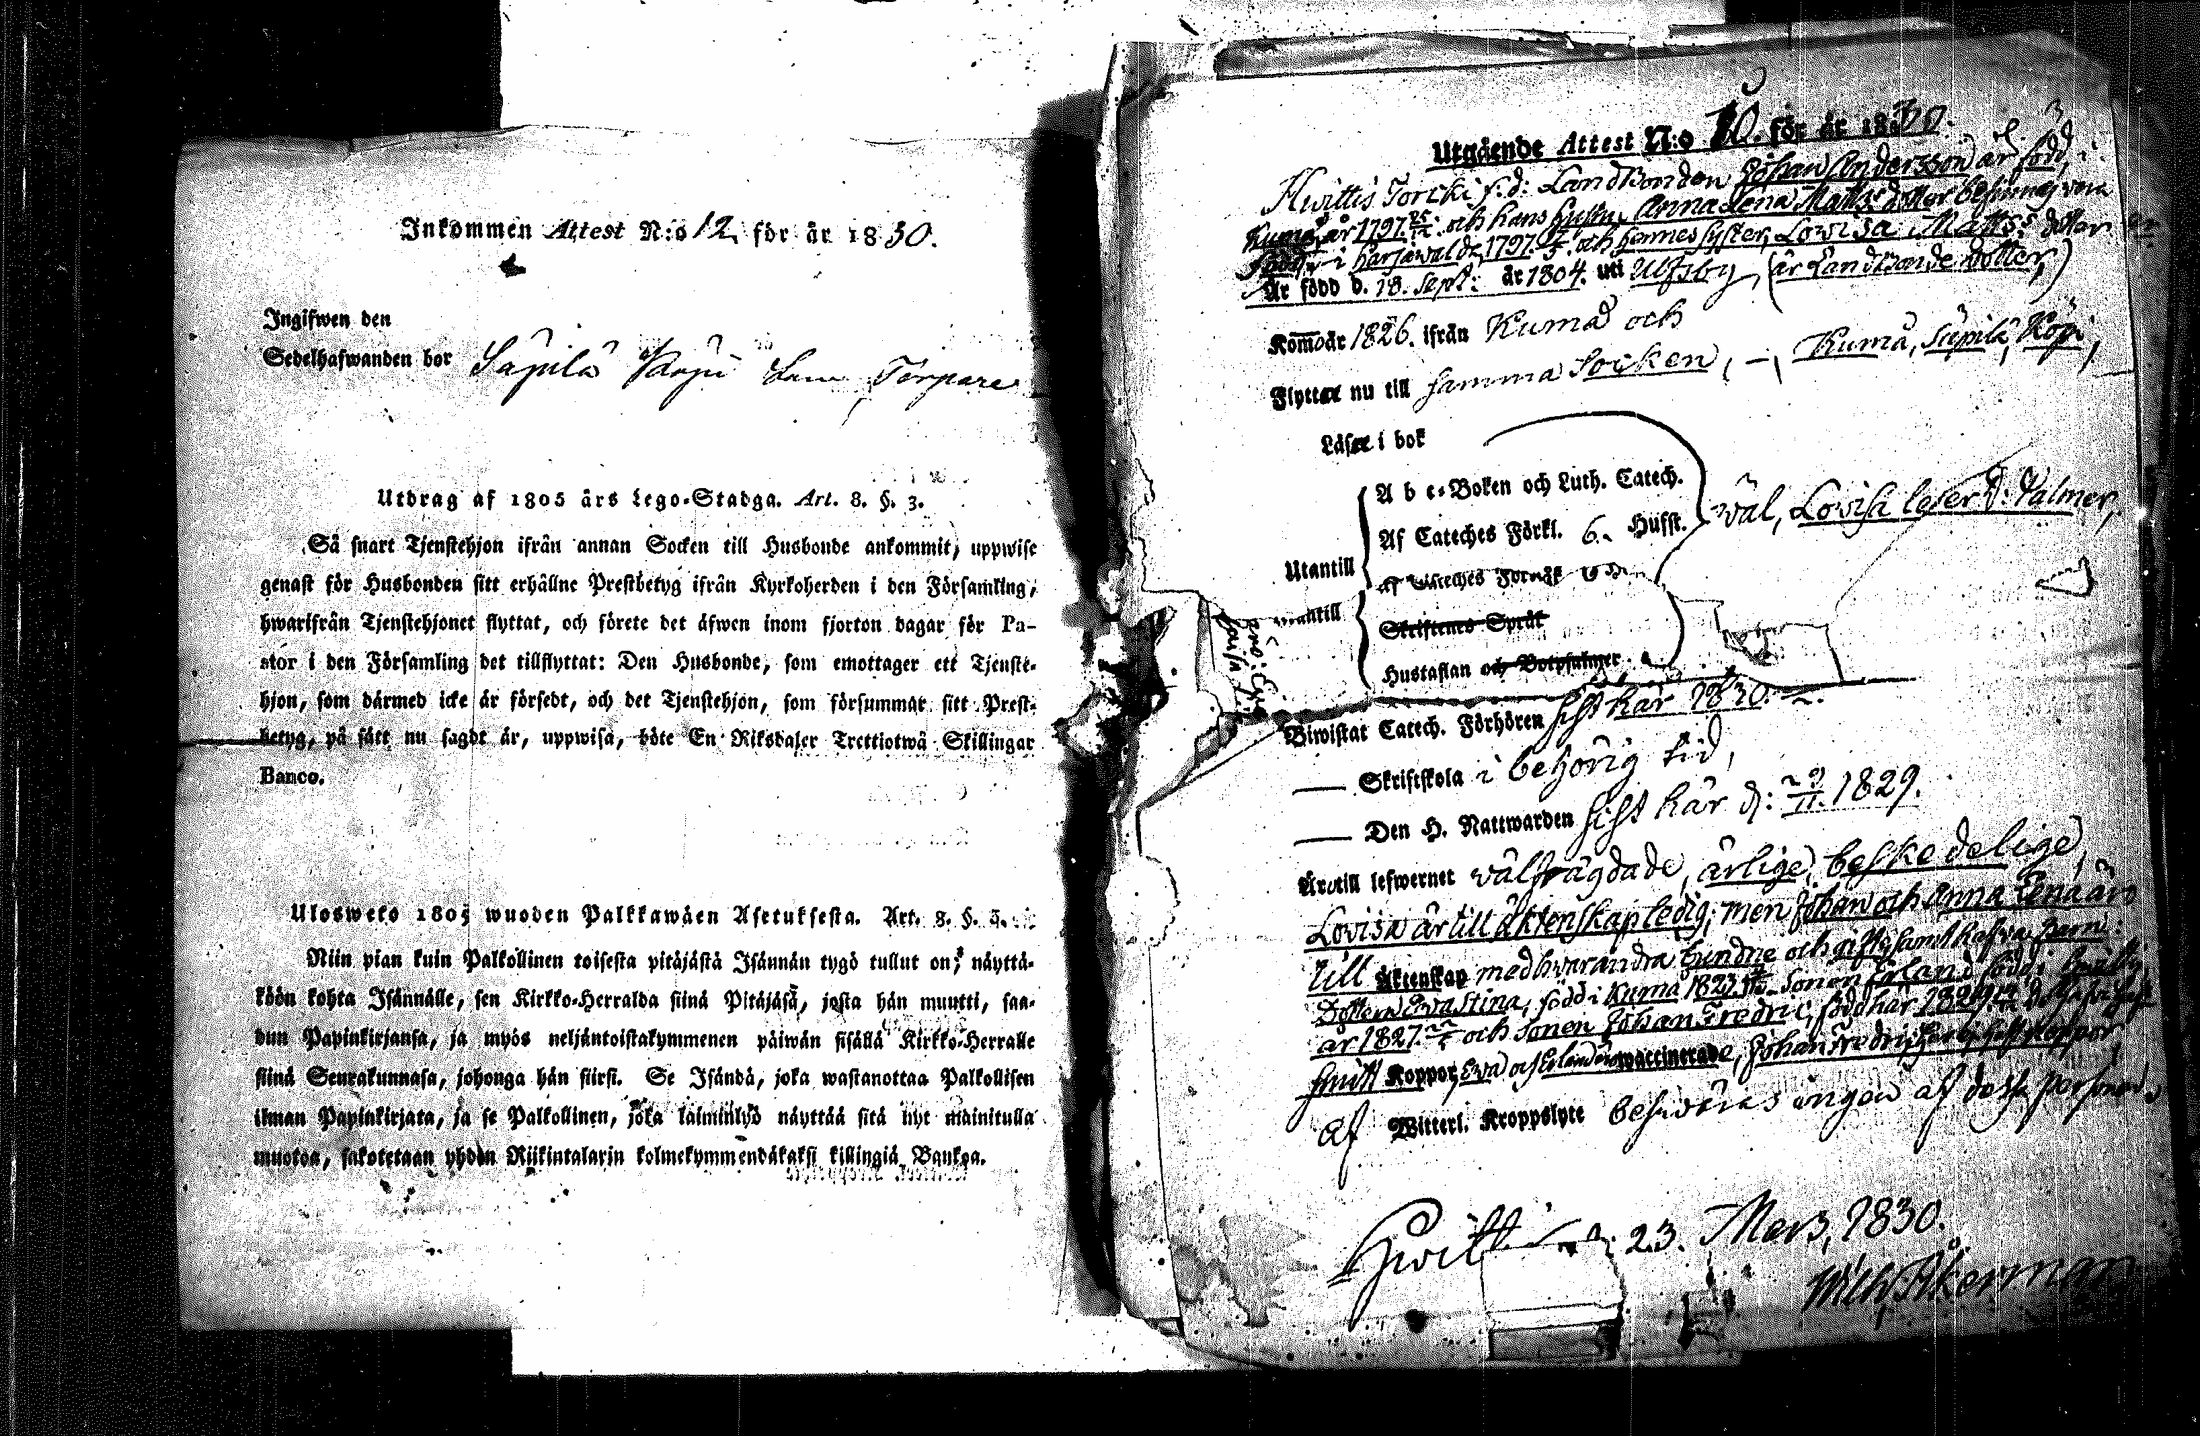 Inkommen Attest N:o 12. för år 1830.
Ingifwen den
Sedelhafwanden bor Säpilä Torpare
Utdrag af 1805 års Lego-Stadga. Art. 8. §. 3.
Så snart Tjenstehjon ifrån annan Socken till Husbonde ankommit, uppwise
genast för Husbonden sitt erhållne Prestbetyg ifrån Kyrkoherden i den Församling,
hwarifrån Tjenstehjonet flyttat, och förete det äfwen inom fjorton dagar för Pa-
stor i den Församling det tillflyttat: Den Husbonde, som emottager ett Tjenste-
hjon, som därmed icke är försedt, och det Tjenstehjon, som försummar sitt Prest-
betyg, på sätt nu sagdt är, uppwisa, böte En Riksdaler Trettiotwå Skillingar
Banco.
Ulosweto 1805 wuoden Palkkawäen Asetuksesta. Art. 8. §. 3.
Niin pian kuin Palkollinen toisesta pitäjästä Isännän tygö tullut on, näyttä-
köön kohta Isännälle, sen Kirkko-Herralda siinä Pitäjäsä, josta hän muutti, saa-
dun Papinkirjansa, ja myös neljäntoistakymmenen päiwän sisällä Kirkko-Herralle
siinä Seurakunnasa, johonga hän siirsi. Se Isändä, joka wastanottaa Palkollisen
ilman Papinkirjata, ja se Palkollinen, joka laiminlyö näyttää sitä nyt mainitulla
muotoa, sakotetaan yhden Riikintalarin kolmekymmendäkaksi killingiä Bankoa.
Utgående Attest N:o 10. för år 1830.
Hwittis Torcki f.d: Landbonden Johan Andersson är född i
Kumå, år 1797. och hans hustru Anna Lena Matts dotter
född i Harjawalda, 1797. och hennes syster Lovisa Matts dotter
Är född d. 18. Sept: år 1804. uti Ulfsby, (är Landbonde Dotter,)
Kom̄o år 1826. ifrån Kumå och
Flytta nu till samma Socken, Kumå, Säpilä, Köpi,
Läsa i bok
A b c-Boken och Luth. Catech.
Utantill Af Cateches Förkl. 6. Hufst. wäl, Lovisa leser D: Psalmer,
Skriftenes Språk
Hustaflan och Botpsalmer
Biwistat Catech. Förhören sist här 1830.
— Skriftskola i behörig tid,
— Den H. Nattwarden sist här d: 29/11. 1829.
Äro till lefwernet wälfrägdade, ärlige, beskedelige,
Lovisa är till äktenskap ledig; men Johan och Anna Lena äro
till Äktenskap med hwarandra bundne och gifta, samt hafwa Barn:
Dottern Eva Stina, född i Kumå 1823. Sonen Erland, född i
år 1827. och sonen Johan Fredric, född här 1829.
smitt Koppor, Eva och Erland äro waccinerade, Johan Fredric
af Witterl. Kroppslyte beswäras ingen af dessa personer,
Hwittis d. 23. Mars, 1830.
Wilh. Åkerman